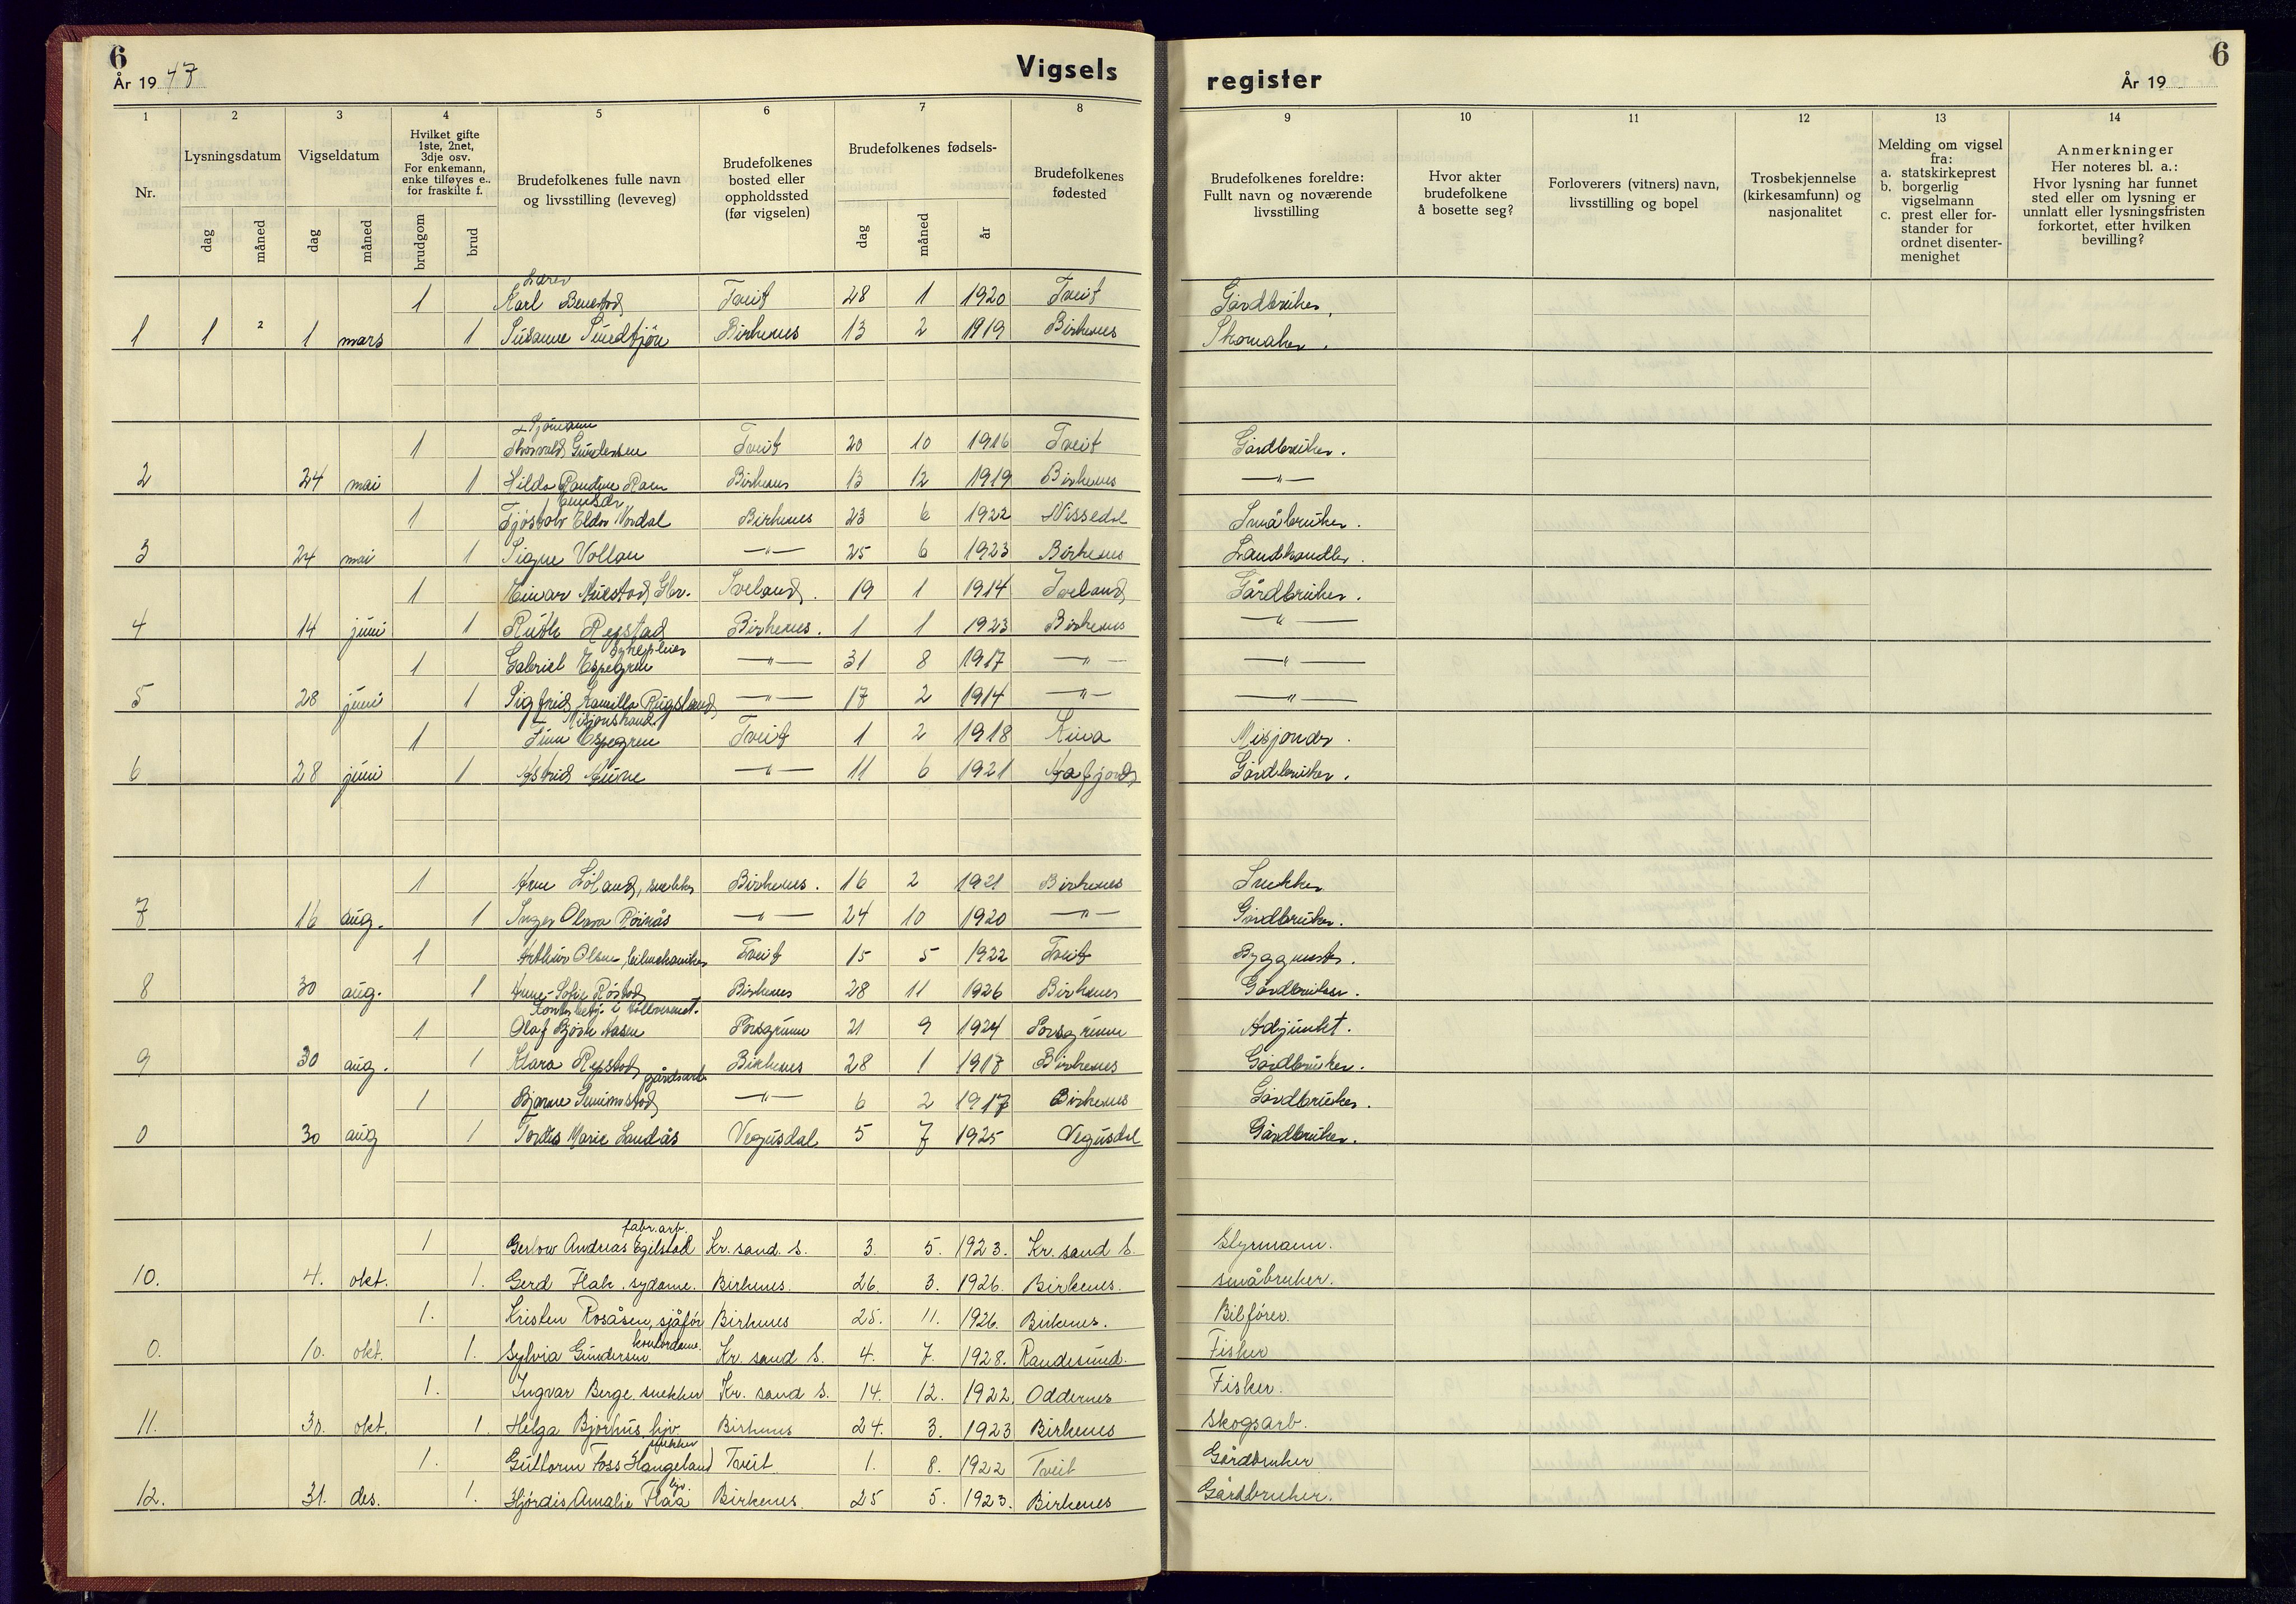 6
År 19 47
Vigsels
1 2 3 4 5 6 7 8
Nr.
Lysningsdatum
dag måned
Vigseldatum
dag måned
Hvilket gifte
1ste, 2net,
3dje osv.
For enkemann,
enke tilføyes e..
for fraskilte f.
brudgom brud
Brudefolkenes fulle navn
og livsstilling (leveveg)
Brudefolkenes
bosted eller
oppholdssted
(før vigselen)
Brudefolkenes fødsels-
dag måned år
Brudefolkenes
fødested
Lærer
1 Karl Benestad Tveit 28 1 1920 Tveit
1 1 2 1 mars 1 Susanne Sundtjön Birkenes 13 2 1919 Birkenes
Sjömann
1 Thorvald Gundersen Tveit 20 10 1916 Tveit
2 24 mai 1 Hilda Raen Birkenes 13 12 1919 Birkenes
1 Tjöstolv Eldor Nordal Birkenes 23 6 1922 Nissedal
3 24 mai 1 Signe Vollan —"— 25 6 1923 Birkenes
1 Einar Iveland. 19 1 1914 Iveland
4 14 juni 1 Ruth Repstad Birkenes. 1 1 1923 Birkenes
1 Gabriel Espegren —"— 31 8 1917 —"—
5 28 juni 1 Sigfrid Kamilla Rugsland —"— 17 2 1914 —"—
Misjonskand.
1 Finn Espegren Tveit 1 2 1918 Kina
6 28 juni 1 Astrid Aune —"— 11 6 1921 Åfjord
1 Arne Löland, snekker Birkenes. 16 2 1921 Birkenes
7 16 aug. 1 Inger Olava —"— 24 10 1920 —"—
1 Arthur Olsen, bilmekaniker Tveit 15 5 1922 Tveit
8 30 aug. 1 Anne-Sofie Röstad Birkenes 28 11 1926 Birkenes
i tollvesenet.
1 Olaf Björk Aasen Porsgrunn 21 9 1924 Porsgrunn
9 30 aug. 1 Klara Repstad Birkenes 28 1 1917 Birkenes
gårdsarb.
1 Bjarne —"— 6 2 1917 Birkenes
0 30 aug 1 Tordis Marie Landås Vegusdal 5 7 1925 Vegusdal
fabr. arb.
1 Gerlow Andreas Egilstad Kr. sand S. 3. 5. 1923. Kr. sand S.
10. 4. okt. 1. Gerd Flak. sydame. Birkenes. 26. 3. 1926. Birkenes.
1. Kristen Rosåsen, sjåfør Birkenes 25. 11. 1926. Birkenes.
kontordame.
0. 10. okt. 1. Sylvia Gundersen Kr. sand S. 4. 7. 1928. Randesund.
1. Ingvar Berge. snekker Kr. sand S. 14. 12. 1922. Oddernes
11. 30. okt. 1. Helga Bjorhus. hjv. Birkenes 24. 3. 1923 Birkenes
snekker
1. Guttorm Foss Haugeland Tveit 1. 8. 1922 Tveit
hjv.
12. 31. des. 1. Hjördis Amalie Flaa Birkenes. 25 5. 1923. Birkenes
register
År 19
6
9 10 11 12 13 14
Brudefolkenes foreldre:
Fullt navn og noværende
livsstilling
Hvor akter
brudefolkene
å bosette seg?
Forloverers (vitners) navn,
livsstilling og bopel
Trosbekjennelse
(kirkesamfunn) og
nasjonalitet
Melding om vigsel
fra:
a. statskirkeprest
b. borgerlig
vigselmann
c. prest eller for-
stander for
ordnet disenter-
menighet
Anmerkninger
Her noteres bl. a.:
Hvor lysning har funnet
sted eller om lysning er
unnlatt eller lysningsfristen
forkortet, etter hvilken
bevilling?
Gårdbruker,
Skomaker.
Gårdbruker.
—"—
Småbruker.
Landhandler.
Gårdbruker.
—"—
—"—
—"—
Misjonær.
Gårdbruker.
Snekker
Gårdbruker.
Byggmester.
Gårdbruker.
Adjunkt.
Gårdbruker.
Gårdbruker.
Gårdbruker.
Styrmann.
småbruker.
Bilfører.
Fisker
Fisker.
Skogsarb.
Gårdbruker
Gårdbruker.